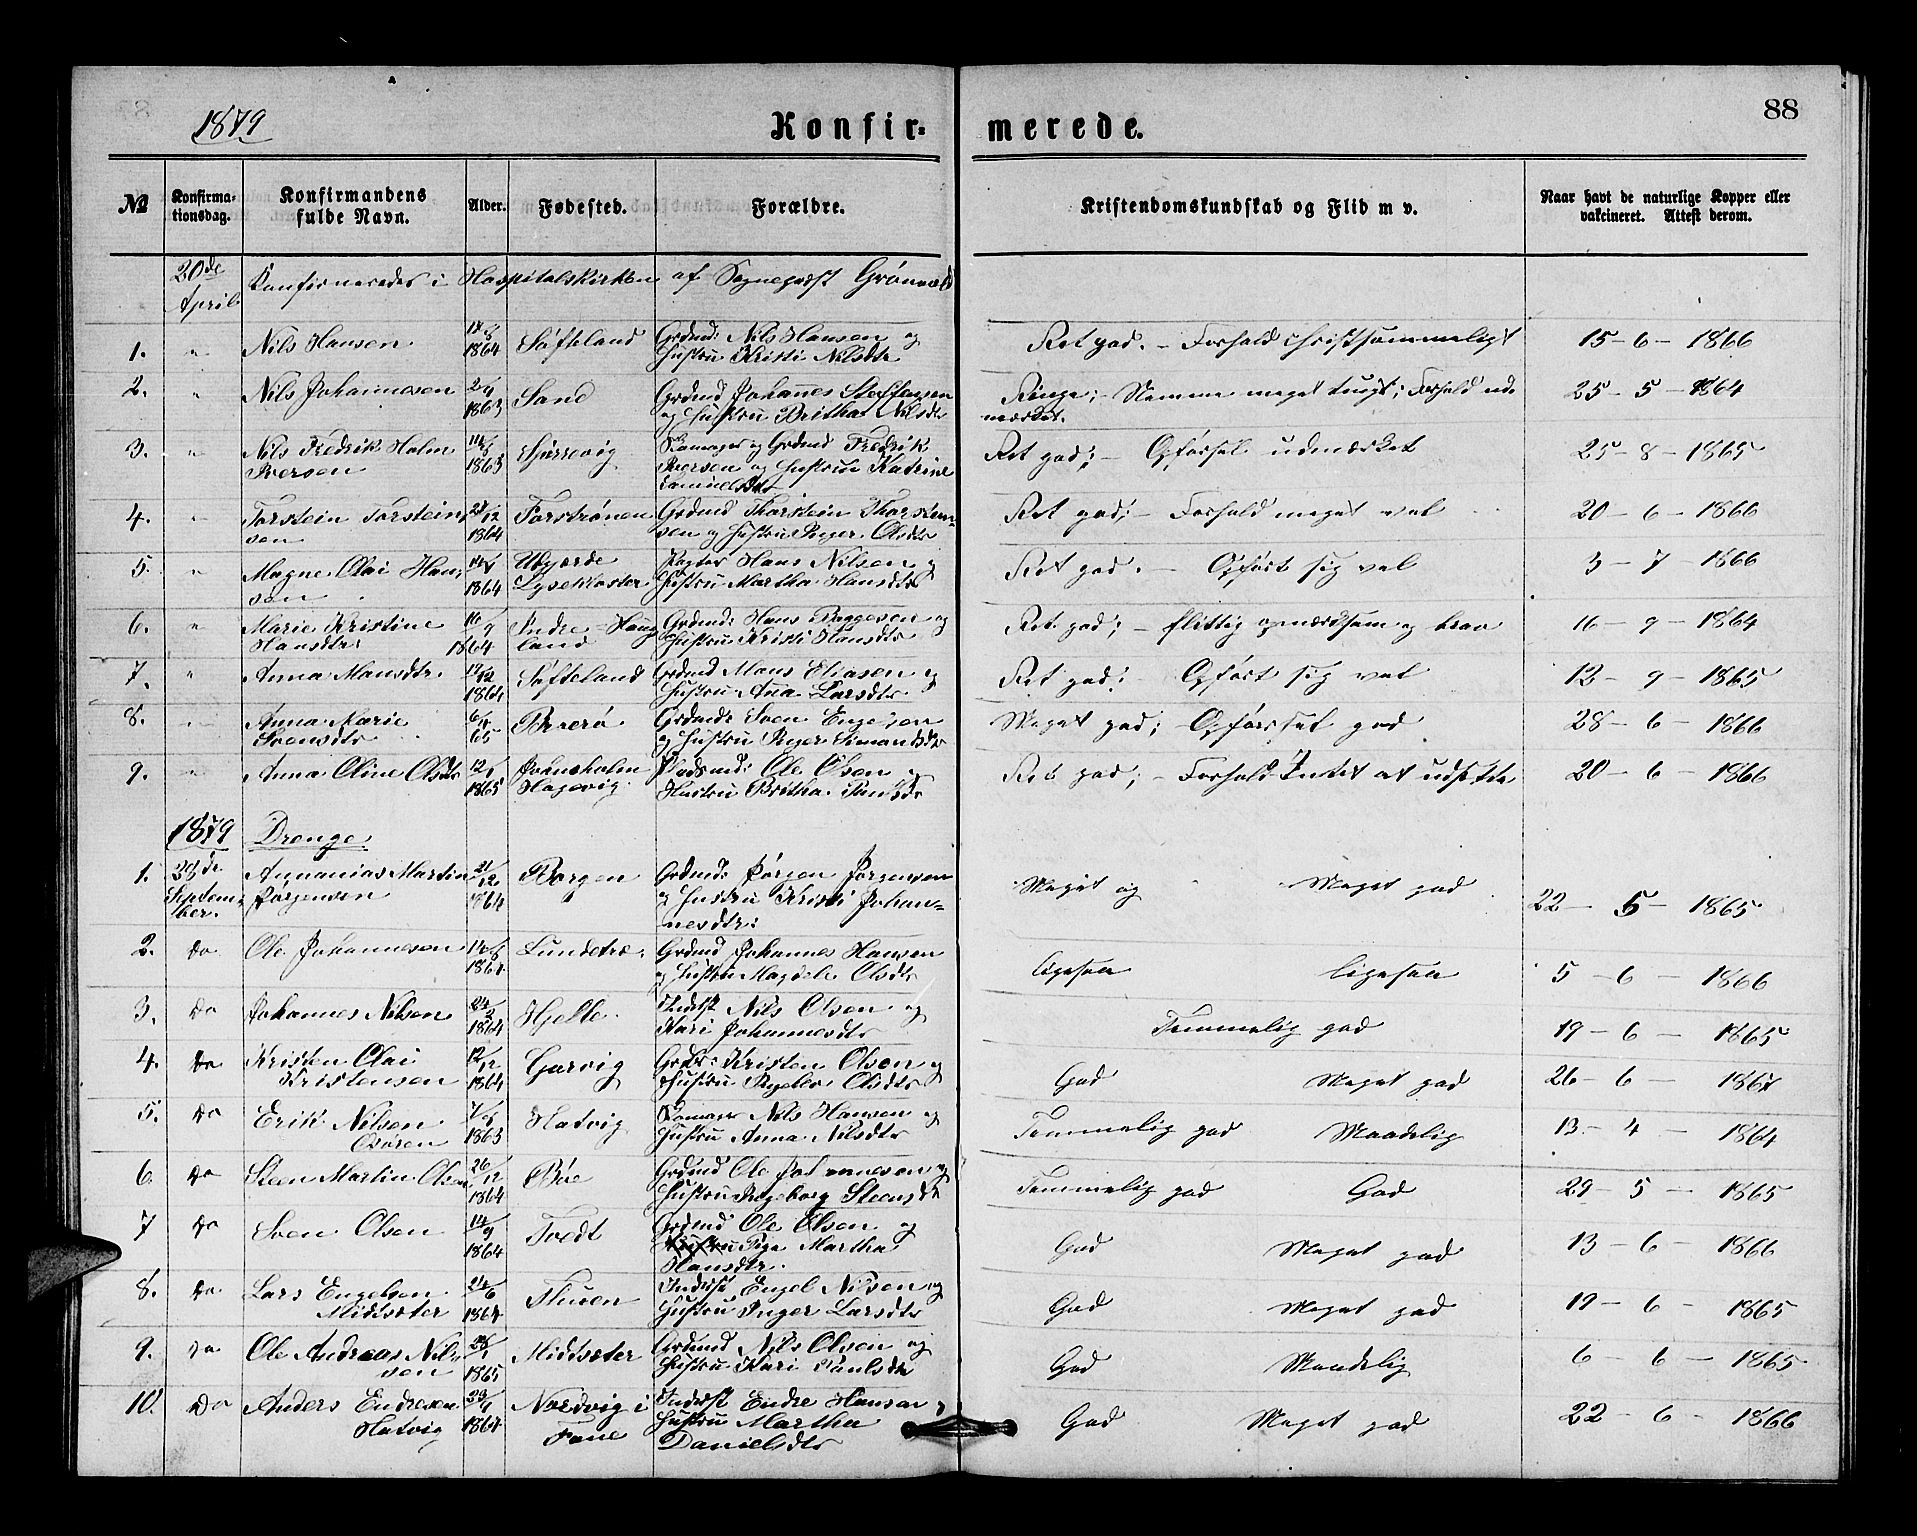 1879
Konfir=
merede.
88
No
Konfirma=
tionsdag.
Konfirmandens
fulde Navn.
Alder.
Fødested.
Forældre.
Kristendomskundskab og Flid m v.
Naar havt de naturlige Kopper eller
vakcineret. Attest derom.
20de
April
Konfirmeredes i Hospitalskirken af Sognepræst Grønvold
1. " Nils Hansen 1864 Søfteland Grdmd: Nils Hansen og
Hustru Kristi Nilsdtr
Ret god. - Forhold christsømmeligt 15-6-1866
2. " Nils Johannesen 1863 Sand Grdmd Johannes Steffensen
og Hustru Britha Nilsdtr
Ringe; - Nemme meget tungt; Forhold ud-
mærket. 25-5-1864
3. " Nils Fredrik Holm
Beersen 1863 og Grdmd Fredrik
Beersen og Hustru Katrine
Samuelsdtr
Ret god; - Opførsel udmærket 25-8-1865
4. " Torstein Torstein-
sen 1864 Forstrønen Grdmd Thorstein Thorstein-
sen og Hustru Inger Olsdtr
Ret god; - Forhold meget vel 20-6-1866
5. " Magne Olai Han-
sen 1864 Ubgjerde
Lysekloster Pagter Hans Nilsen og
Hustru Martha Hansdtr
Ret god. - Opført sig vel 3-7-1866
6. " Marie Kristine
Hansdtr. 16/9 1864 Indre=Haug
land Grdmd: Hans Baggesen og
Hustru Kristi Hansdtr
Ret god; - flittig opmærksom og brav 16-9-1864
7. " Anna Mansdtr. 1864 Søfteland Grdmd Mons Eliasen og
Hustru Ana Larsdtr
Ret god; Opført sig vel 12-9-1865
8. " Anna Marie
Svensdtr 65 Bruerø Grdmd: Sven Engelsen
og Hustru Inger Simonsdtr
Meget god; - Opførsel god 28-6-1866
9. " Anna Oline Olsdtr 1865 Johnsholm
Hagevig Pladsmd: Ole Olsen og
Hustru Britha
Ret god; - Forhold Intet at udsætte 20-6-1866
1879 Drenge.
1. 28de
Septem-
ber. Annanias Martin
Jørgensen 21/12 1864 Borgen Grdmd: Jørgen Jørgensen
og Hustru Kristi Johan=
nesdtr:
Meget god Meget god 22-5-1865
2. Do Ole Johannesen 1864 Lundetræ. Grdmd Johannes Hansen
og Hustru Magdeli Olsdtr
ligesaa ligesaa 5-6-1866
3. Do Johannes Nilsen 24/2 1864 Hjelle. Inderst Nils Olsen og
Kari Johannesdtr
Temmelig god 19-6-1865
4. Do Kristen Olai
Kristensen 12/12 1864 Garvig Grdbr: Kristen Olsen og
Hustru Ingebor Olsdtr
God Meget god 26-6-1867
5. Do Erik Nilsen
Osøren 1863 Hatvig Nils Hansen og
Hustru Anna Nilsdtr
Temmelig god Maadelig 13-4-1864
6. Do Steen Martin Olsen 26/12 1864 Bøe Grdmd Ole Johannesen og
Hustru Ingeborg Steensdtr
Temmelig god God 29-5-1865
7 Do Sven Olsen 14/9 1864 Tvedt Grdmd Ole Olsen og
Hustru Pige Martha
Hansdtr.
God Meget god 13-6-1866
8. Do Lars Engelsen
Midtsæter 24/6 1864 Thuen Inderst Engel Nilsen og
Hustru Inger Larsdtr
God Meget god 19-6-1865
9. Do Ole Andreas Nil-
sen 1865 Midtsæter Grdmd Nils Olsen og
Hustru Kari Paulsdtr
God Maadelig 6-6-1865
10. Do Anders Endresen
Hatvig 1864 Nordvig i
Fane Inderst Endre Hansen og
Hustru Martha
Danielsdtr
God Meget god 22-6-1866